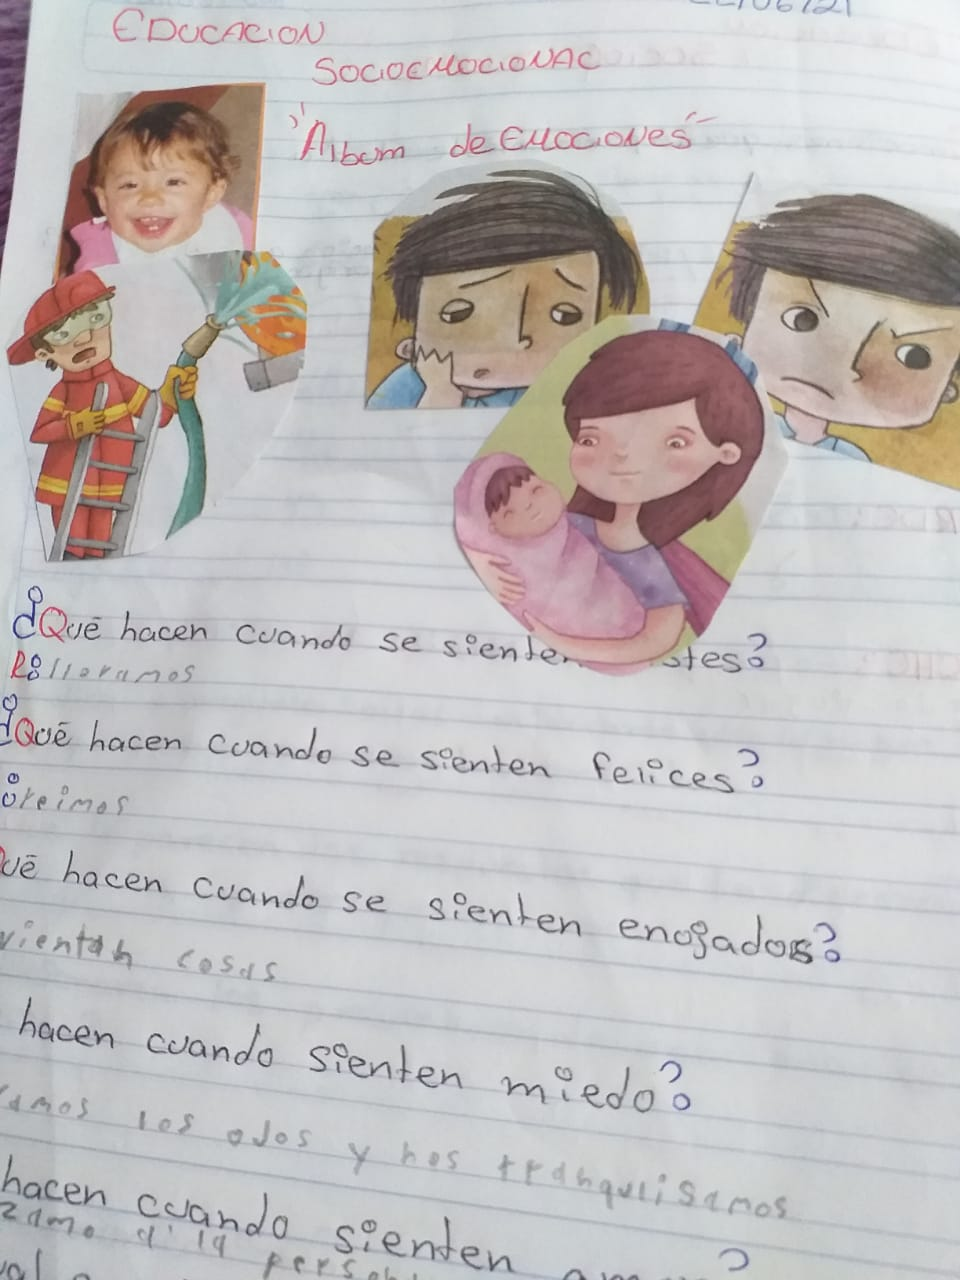 EDUCACION
SOCIOEMOCIONAL
"Album de EMOCIONES"
¿Què hacen cuando se sienten
R: lloramos
¿Què hacen cuando se sienten felices?
reimos
hacen cuando se sienten enogados?
cosas
hacen cuando sienten miedo?
los ojos y nos tranquilisamos
hacen cuando sienten